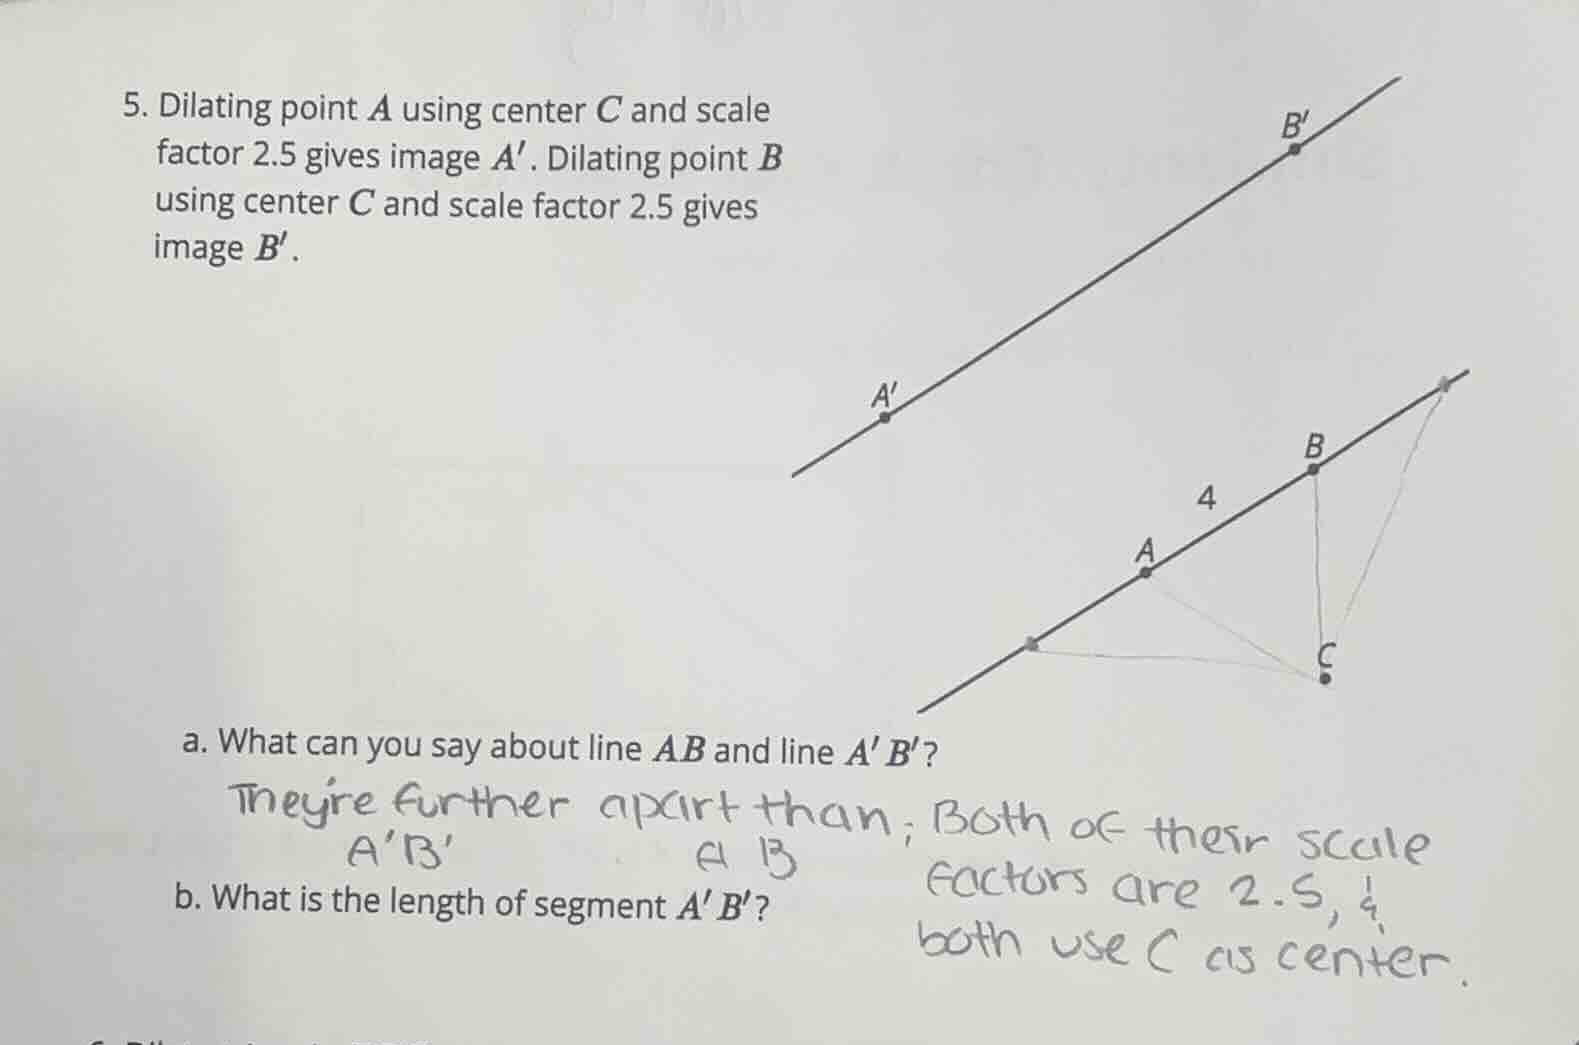 5. Dilating point A using center C and scale
factor 2.5 gives image A′. Dilating point B
using center C and scale factor 2.5 gives
image B′.
B′
A′
B
4
A
C
a. What can you say about line AB and line A′ B′?
They're further apart than; Both of their scale
A'B' A B
factors are 2.5, &
b. What is the length of segment A′ B′?
both use C as center.